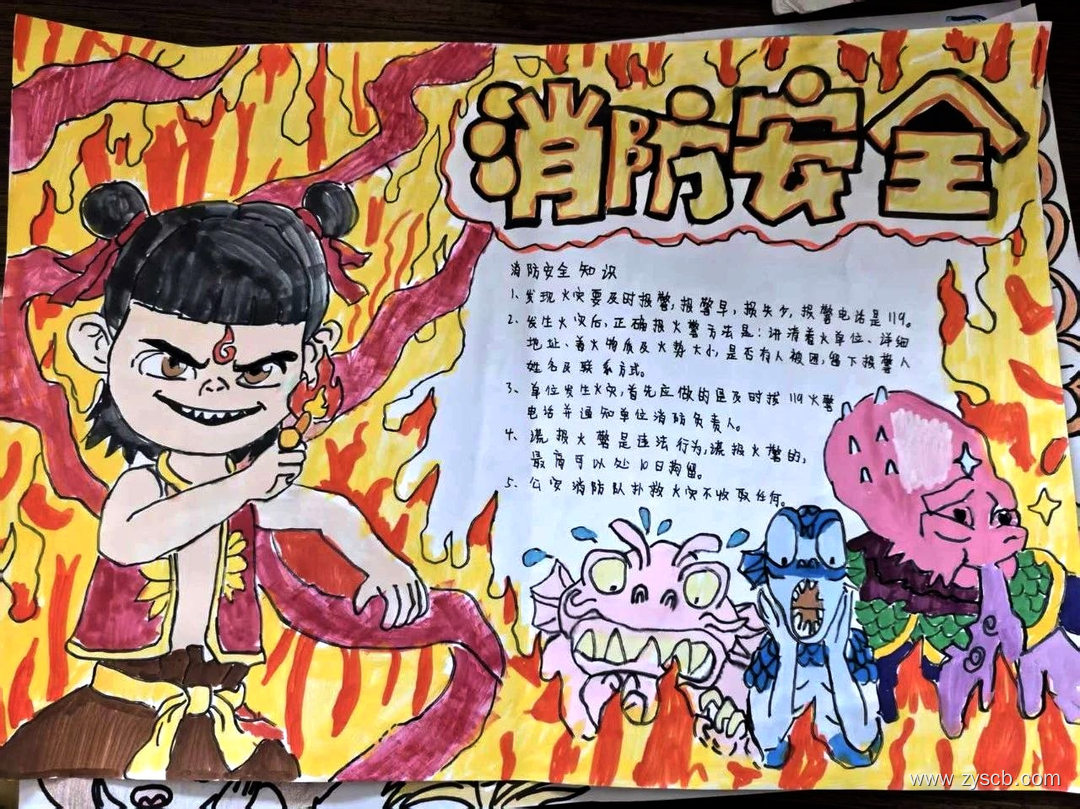 消防安全
消防安全知识
1、发现火灾要及时报警,报警早,损失少,报警电话是119。
2、发生火灾后,正确报火警方法是:讲清着火单位、详细
地址、着火物质及火势大小,是否有人被困,留下报警人
姓名及联系方式。
3、单位发生火灾,首先应做的是及时拨119火警
电话并通知单位消防负责人。
4、谎报火警是违法行为,谎报火警的,
最高可以处10日拘留。
5、公安消防队扑救火灾不收取任何。
www.zyscb.com